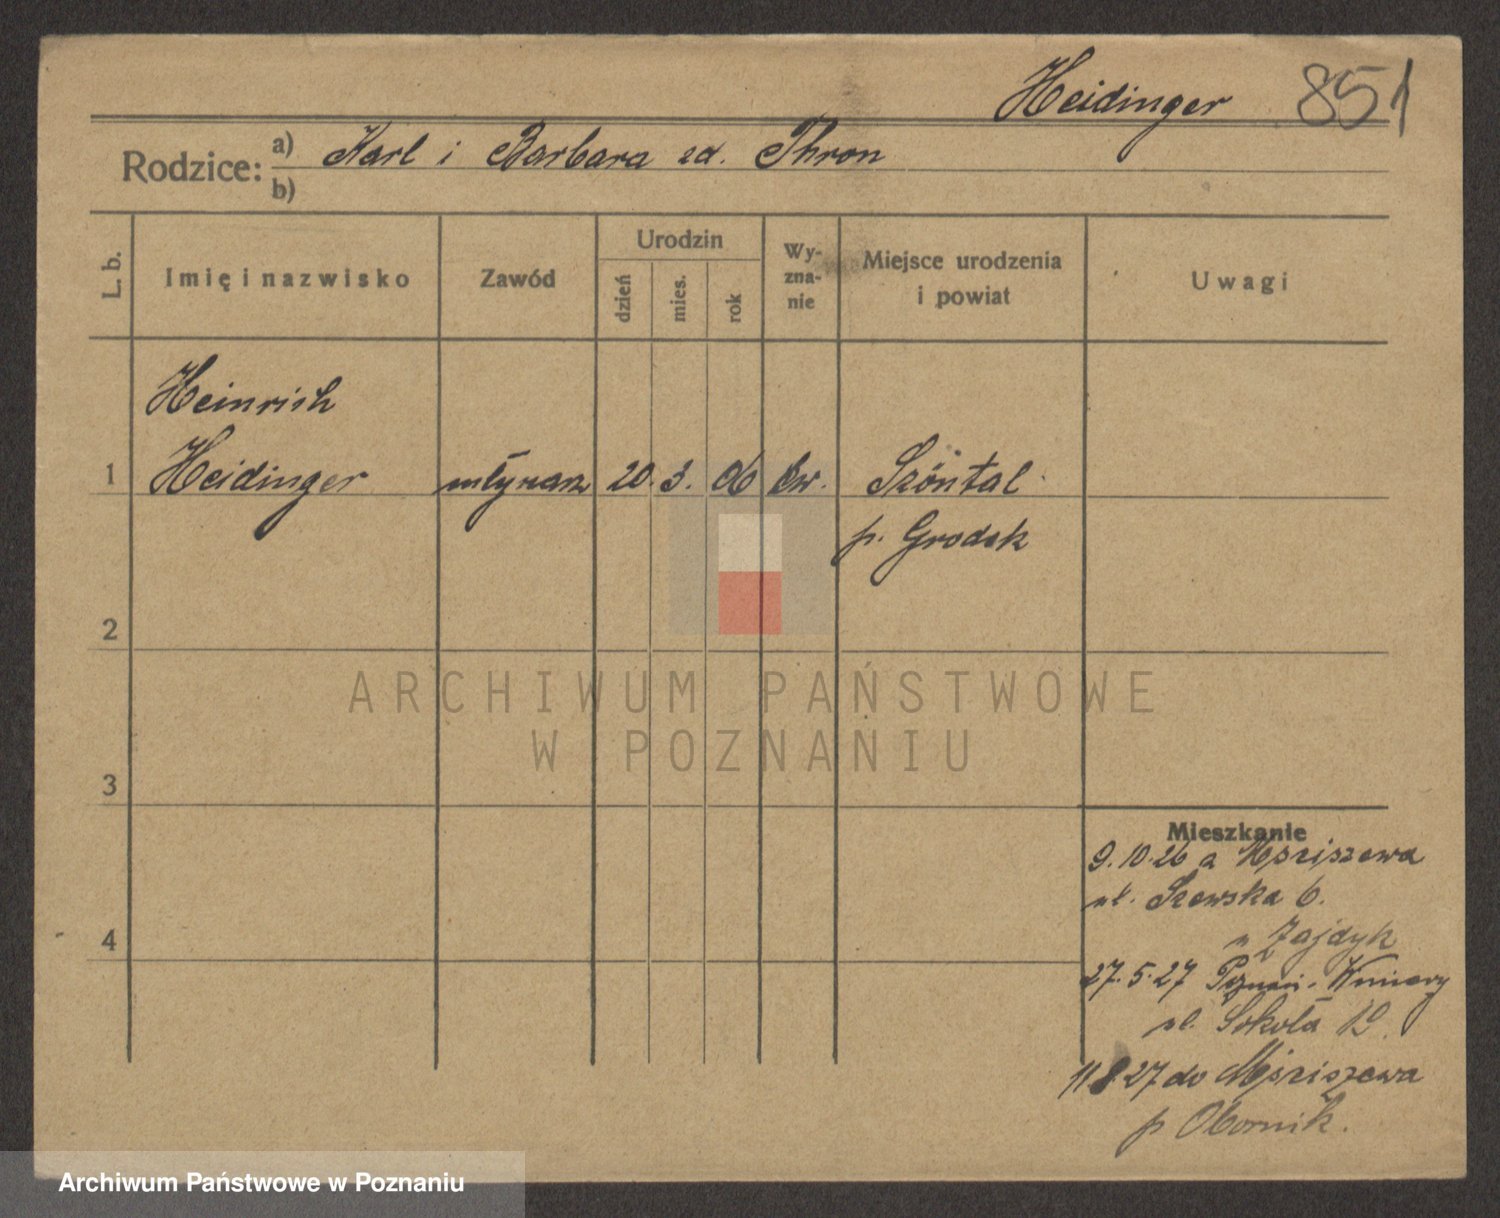 Heidinger 851
Rodzice: a) Karl i Barbara zd. Thron
b)
L. b.
Imię i nazwisko
Zawód
Urodzin
dzień
mies.
rok
Wy-
zna-
nie
Miejsce urodzenia
i powiat
Uwagi
Heinrich
1 Heidinger młynarz 20. 3. 06 Ew. Szöntal
p. Grodek
2
3
4
Mieszkanie
9.10.26 z
ul. Szewska 6.
u Zajdyk
27.5.27 Poznań. Winiary
ul. Sokoła 19.
11.8.27 do
p Obornik.
ARCHIWUM PAŃSTWOWE
W POZNANIU
Archiwum Państwowe w Poznaniu